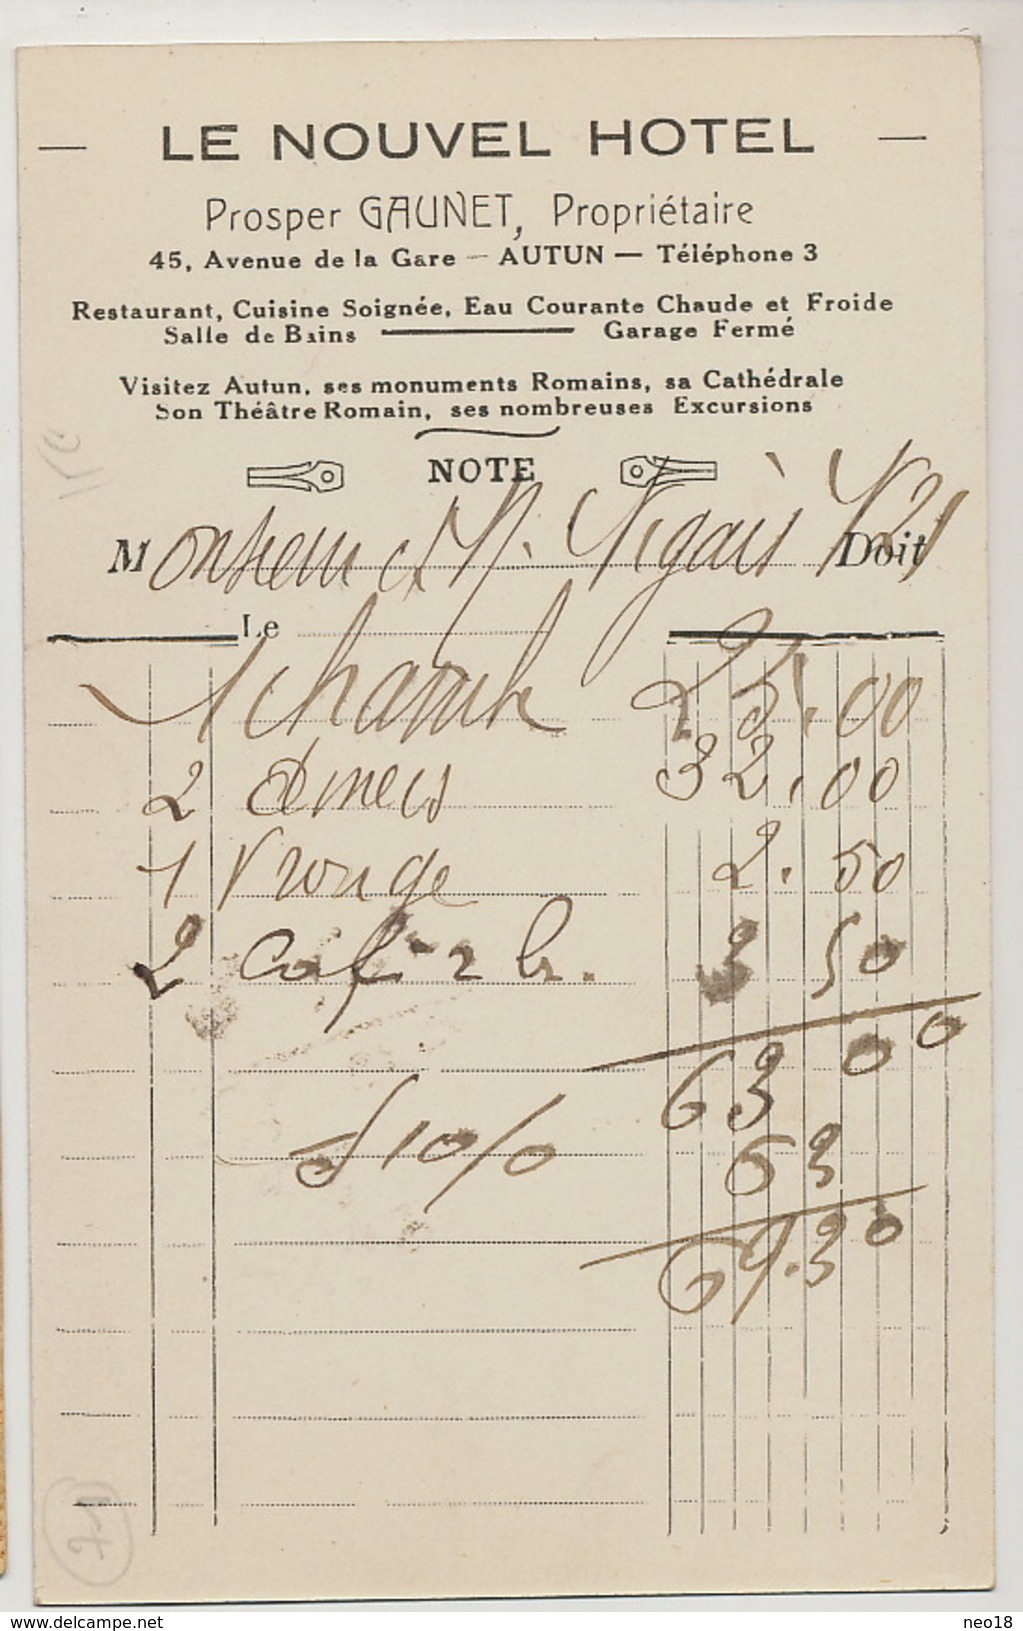 LE NOUVEL HOTEL
Prosper GAUNET, Propriétaire
45, Avenue de la Gare — AUTUN — Téléphone 3
Restaurant, Cuisine Soignée, Eau Courante Chaude et Froide
Salle de Bains Garage Fermé
Visitez Autun, ses monuments Romains, sa Cathédrale
Son Théâtre Romain, ses nombreuses Excursions
NOTE
Monsieur et M. Doit
Le
1 chamb 25.00
2 diners 32.00
1 V rouge 2.50
2 Caf 3 50
63 00
S 10% 6 3
69.30
www.delcampe.net
neo18